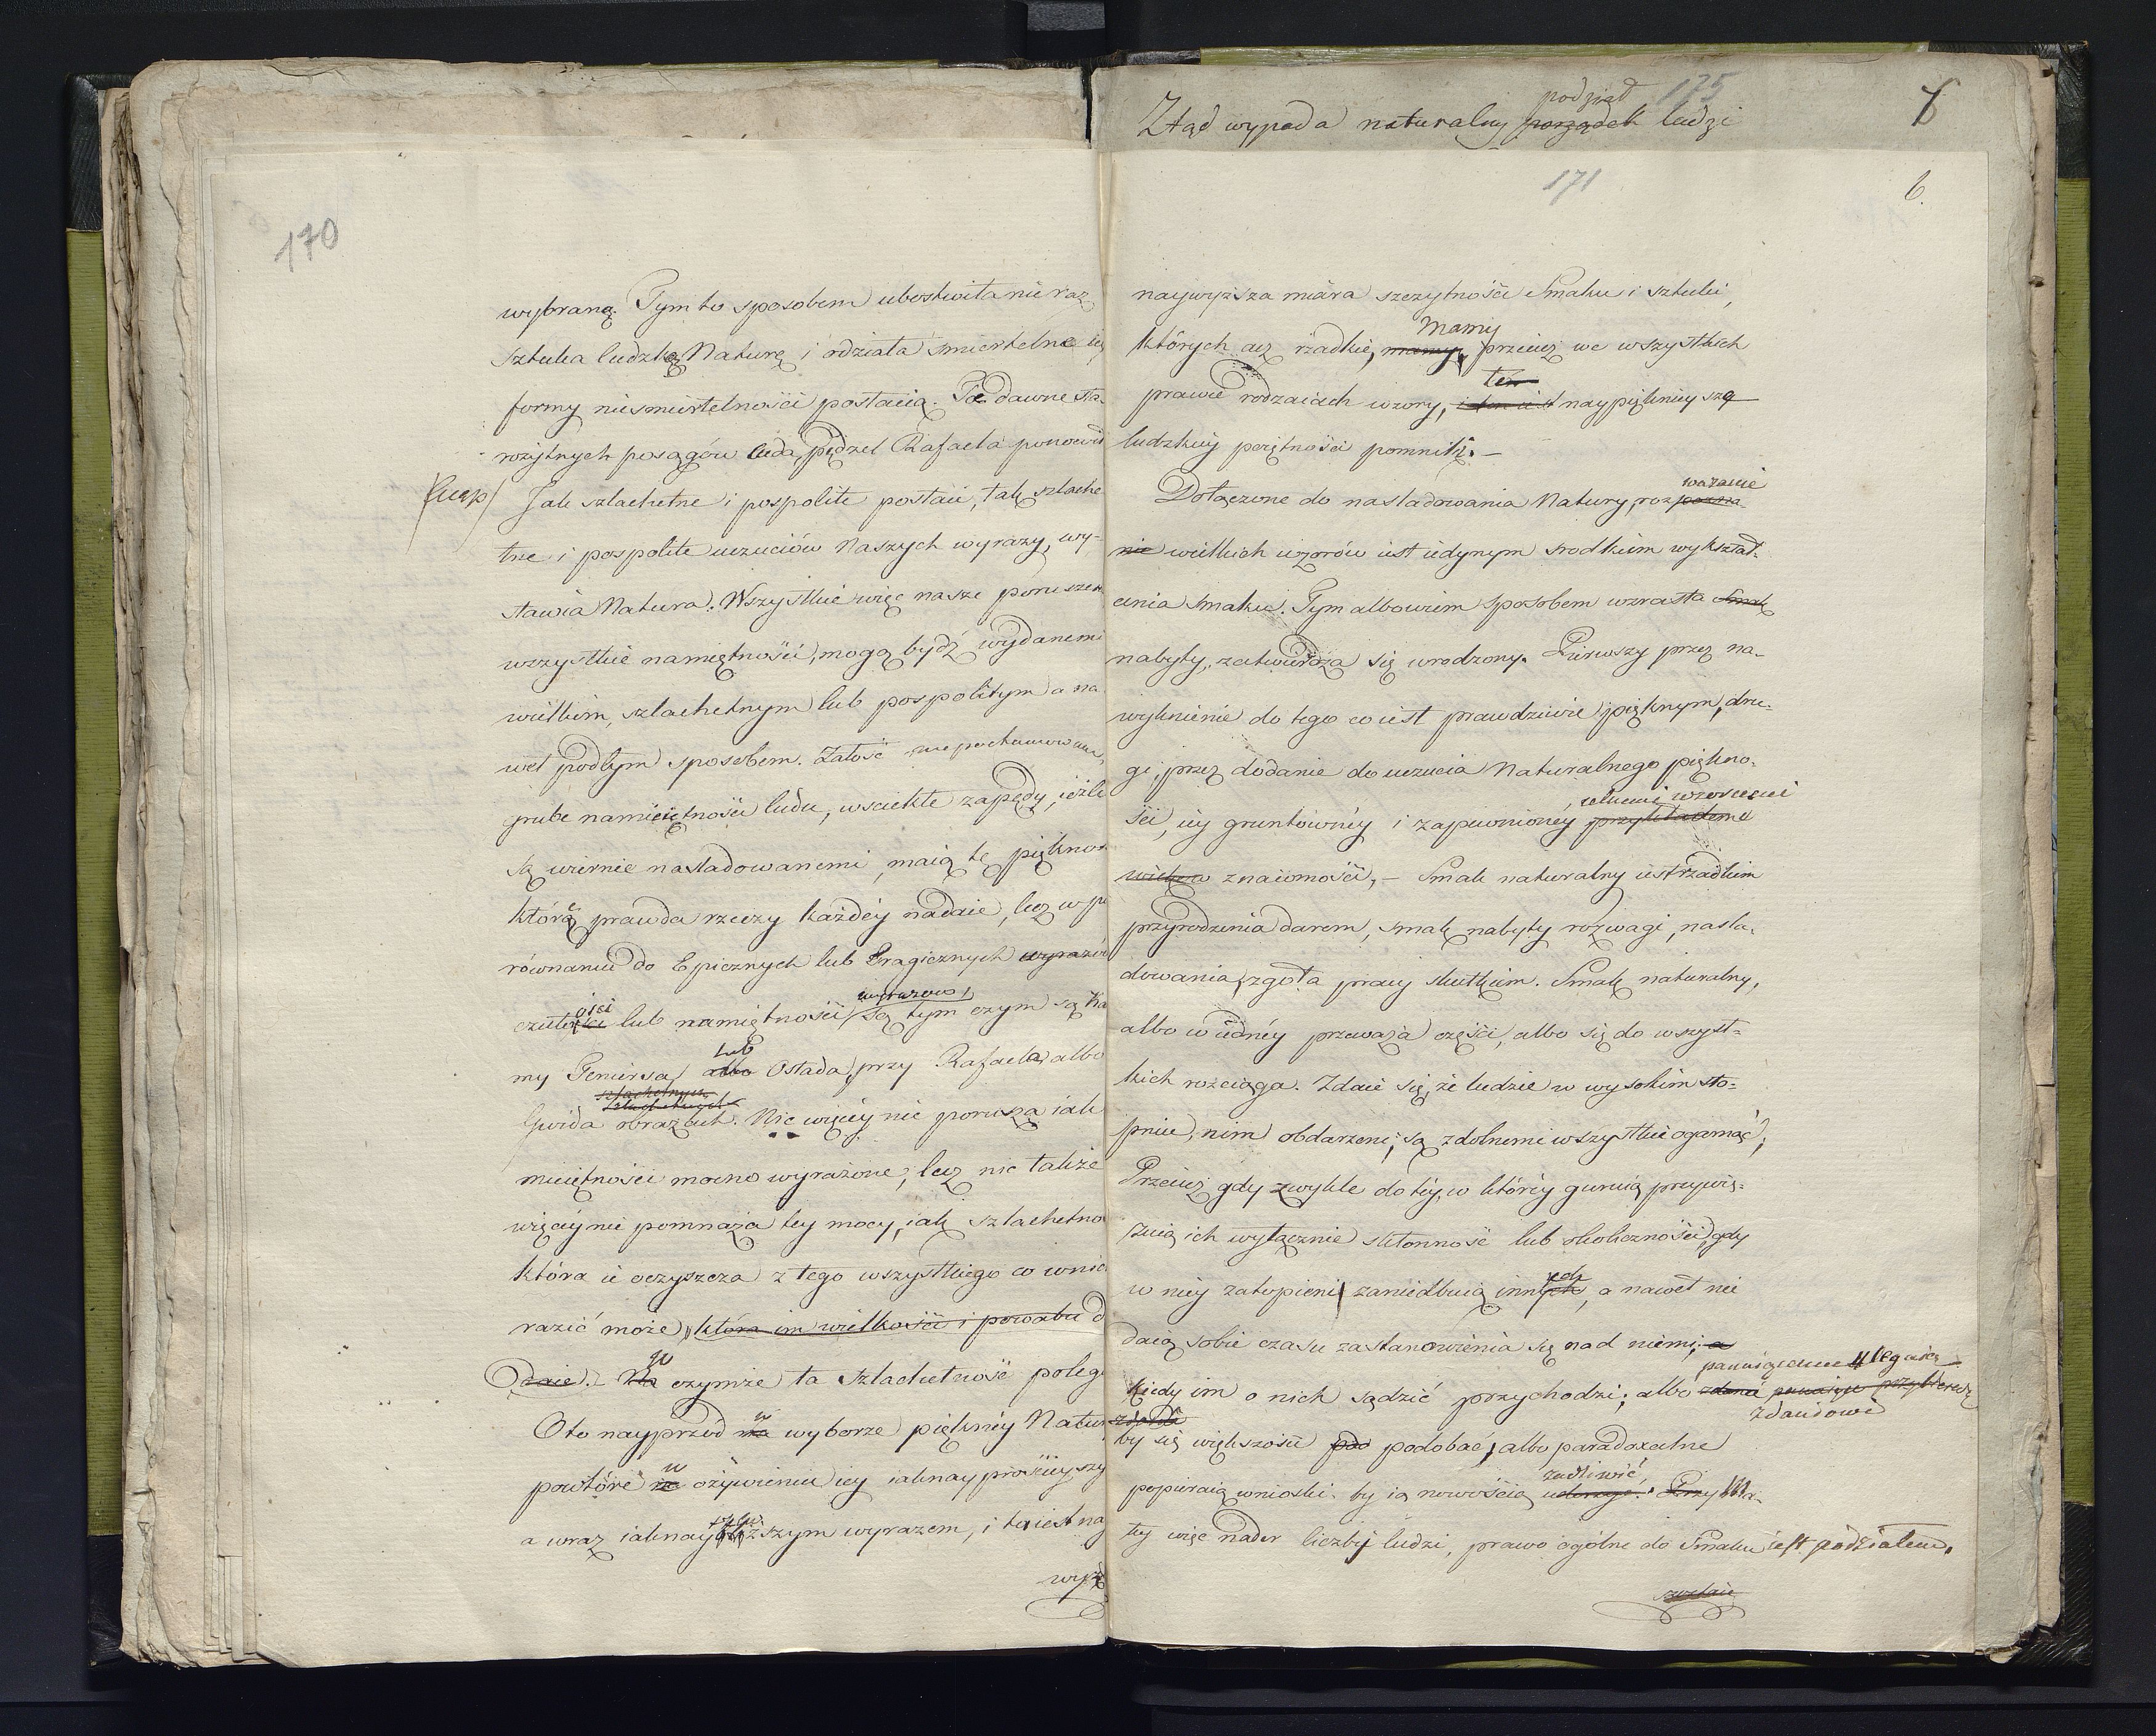 170
wybraną. Tym to sposobem ubóstwiła nie raz
sztuka ludzką Naturę i odziała śmiertelne iey
formy niesmiertelności postacią. Te dawne sta-
rożytnych posągów cuda, pędzel Rafaela ponowił
Jak szlachetne i pospolite postaci, tak szlache
tne i pospolite uczuciów Naszych wyrazy, wy-
stawia Natura. Wszystkie więc nasze poruszen
wszystkie namiętności, mogą bydź wydanemi
wielkim, szlachetnym lub pospolitym a na
wet podłym sposobem. Żałość niepochamowana,
grube namiętności ludu, wsciekłe zapędy, ieżli
są wiernie nasladowanemi, maią tę pięknoś
którą prawda rzeczy każdéy nadaie, lecz w po
równaniu do Epicznych lub Tragicznych wyrazów
wyrazów,
czułości lub namiętności, są tym czym są Kar
lub
my Teniersa, albo Ostada, przy Rafaela, albo
szlachetnych
szlachetnych
Gwida obrazach. Nic więcéy nie porusza iak
miętności mocno wyrażone, lecz nic także
więcéy nie pomnaża tey mocy, iak szlachetno
która ie oczyszcza z tego wszystkiego co wnic
razić może, która im wielkości i powabu d
w
odaie. Na czymże ta szlachetność polega
w
Oto nayprzód na wyborze pięknéy Natur
w
powtóre na ożywieniu iey iaknayprościéyszy
a wraz iaknay szym wyrazem, i ta iest nay
wyż
podział 175
Ztąd wypada naturalny porządek ludzi
171
6.
naywyższa miara szczytności Smaku i sztuki,
Mamy
których acz rzadkie, mamy, przecież we wszystkich
prawie rodzaiach wzory, naypięknieysze
ludzkiéy poiętności pomniki. —
ważanie
Dołączone do nasladowania Natury, roz
nie wielkich wzorów iest iedynym srodkiem wykształ-
cenia smaku. Tym albowiem sposobem wzrasta Smak
nabyty, zatwierdza się wrodzony. Pierwszy przez na-
wyknienie do tego co iest prawdziwie pięknym, dru-
gi, przez dodanie do uczucia Naturalnego piękno-
wzorami
ści, iéy gruntownéy i zapewnioney przykładami
wieków znaiomości, — Smak naturalny iest rzadkim
przyrodzenia darem, smak nabyty rozwagi, nasla-
dowania, zgoła pracy skutkiem. Smak naturalny,
albo w iednéy przeważa części, albo się do wszyst-
kich rozciąga. Zdaie się, że ludzie w wysokim sto-
pniu, nim obdarzeni, są zdolnemi wszystkie ogarnąć,
Przecież gdy zwykle do téy, w któréy guruią, przywię-
zuią ich wyłącznie skłonność lub okoliczności, gdy
w niéy zatopieni zaniedbuią innych, a nawet nie
daią sobie czasu zastanowienia się nad niemi; a
panuiącemu ulegaią
Kiedy im o nich sądzić przychodzi; albo zdanie panuiące przybieraią
zdaniowi
by się większości pod podobać, albo paradoxalne
zadziwić,
popieraią wnioski by ią nowością uderzyć. Przy Ma-
łey więc nader liczby ludzi, prawo ogólne do Smaku iest podziałem.